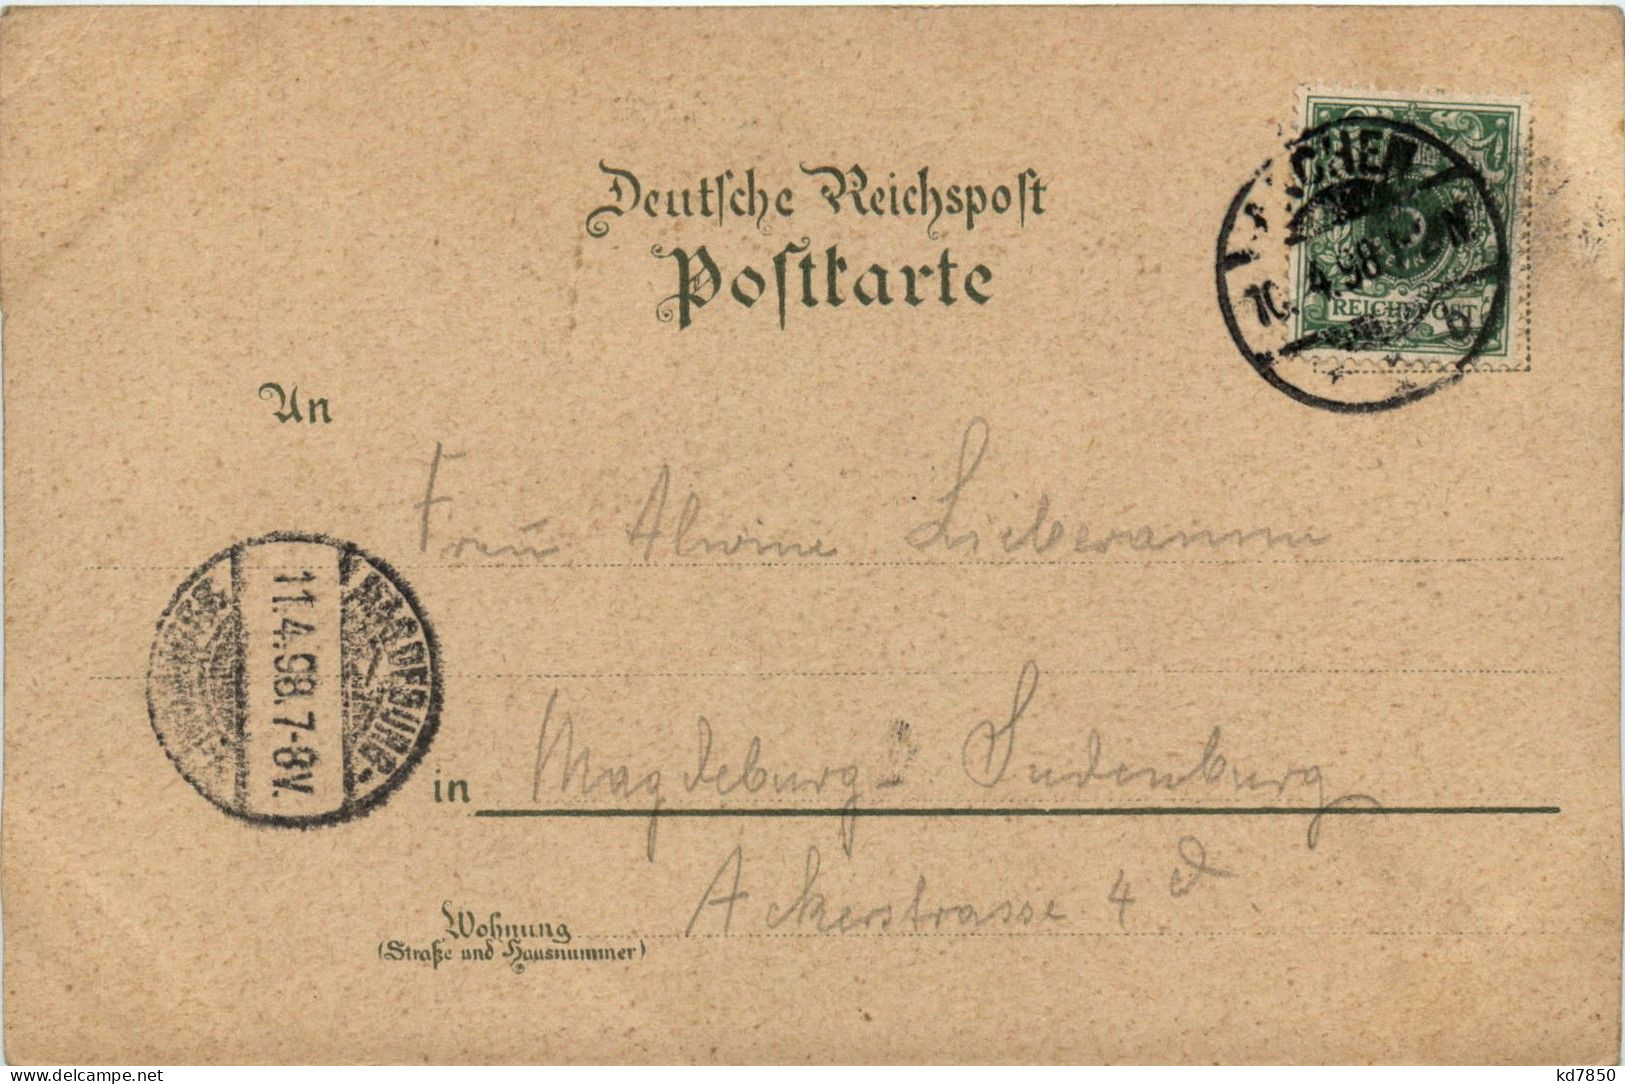 Deutsche Reichspost
Postkarte
AACHEN
10. 4. 98
REICHSPOST
b
An
Frau Alwine Lieberamm
MAGDEBURG
11. 4. 98. 7-8V.
in Magdeburg - Sudenburg
Ackerstrasse 4 d.
Wohnung
(Straße und Hausnummer)
delcampe.net
kd7850